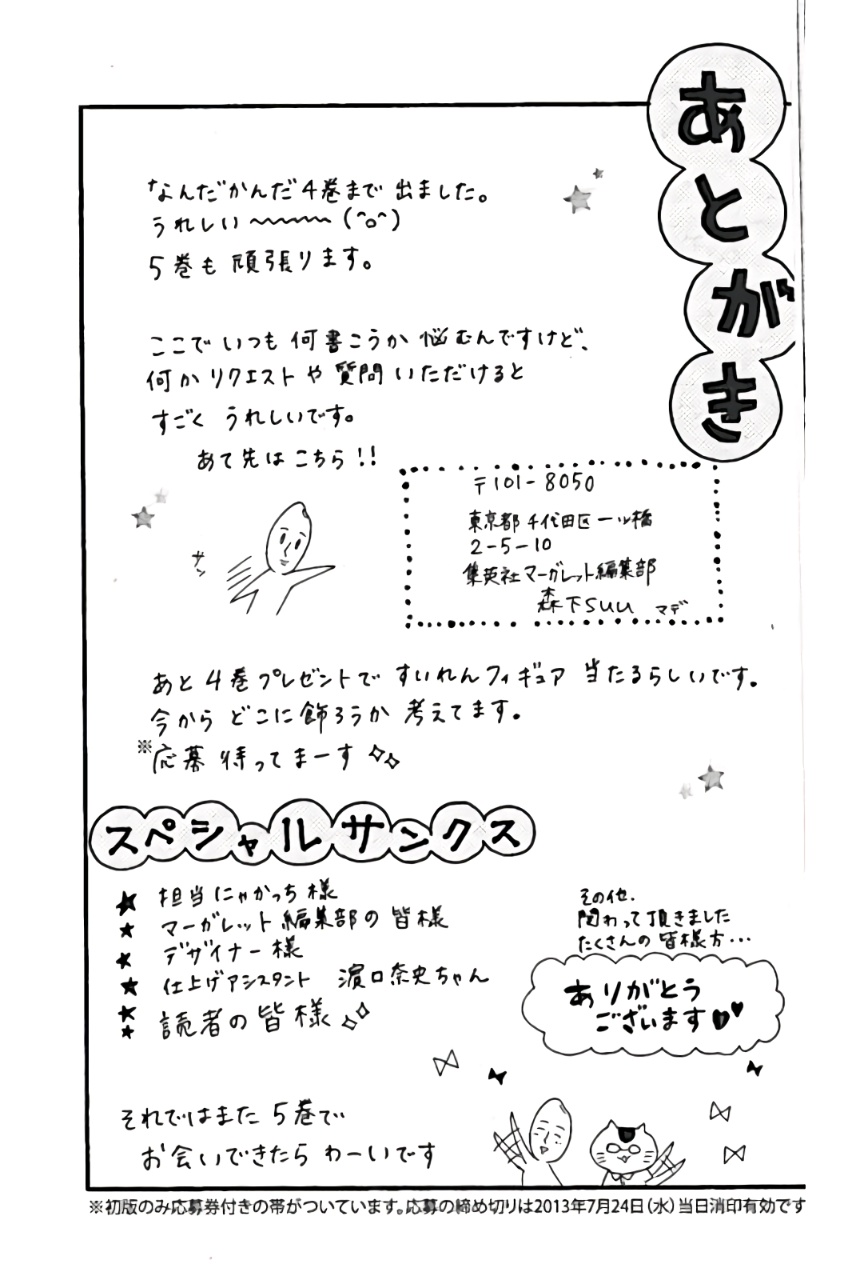 あとがき
なんだかんだ4巻まで出ました。
うれしい〜〜〜〜(^o^)
5巻も頑張ります。
ここでいつも何書こうか悩むんですけど、
何かリクエストや質問いただけると
すごくうれしいです。
あて先はこちら!!
〒101-8050
東京都千代田区一ツ橋
2-5-10
集英社マーガレット編集部
森下suu マデ
サッ
あと4巻プレゼントですいれんフィギュア当たるらしいです。
今からどこに飾ろうか考えてます。
※応募待ってまーす
スペシャルサンクス
★ 担当にゃかっち様
★ マーガレット編集部の皆様
★ デザイナー様
★ 仕上げアシスタント 濵口奈央ちゃん
★ 読者の皆様
その他、
関わって頂きました
たくさんの皆様方…
ありがとう
ございます♥♥
それではまた5巻で
お会いできたらわーいです
※初版のみ応募券付きの帯がついています。応募の締め切りは2013年7月24日(水)当日消印有効です